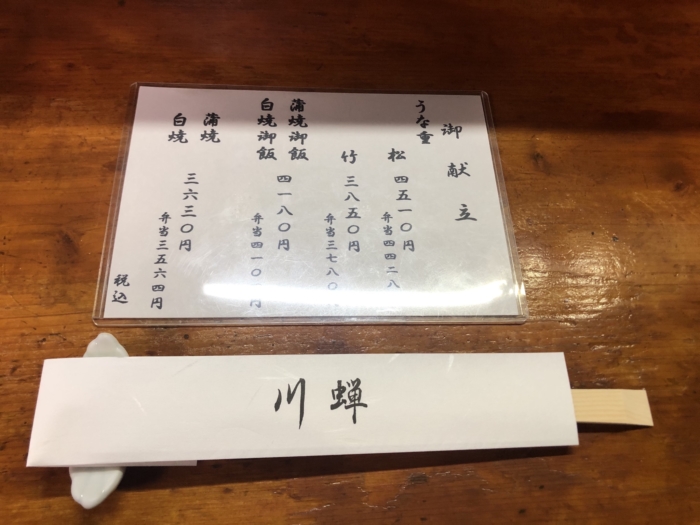 御献立
うな重
松 四五一〇円
弁当四四二八
竹 三八五〇円
弁当三七八〇
蒲焼御飯
白焼御飯
四一八〇円
弁当四一〇四円
蒲焼
白焼
三六三〇円
弁当三五六四円
税込
川蝉